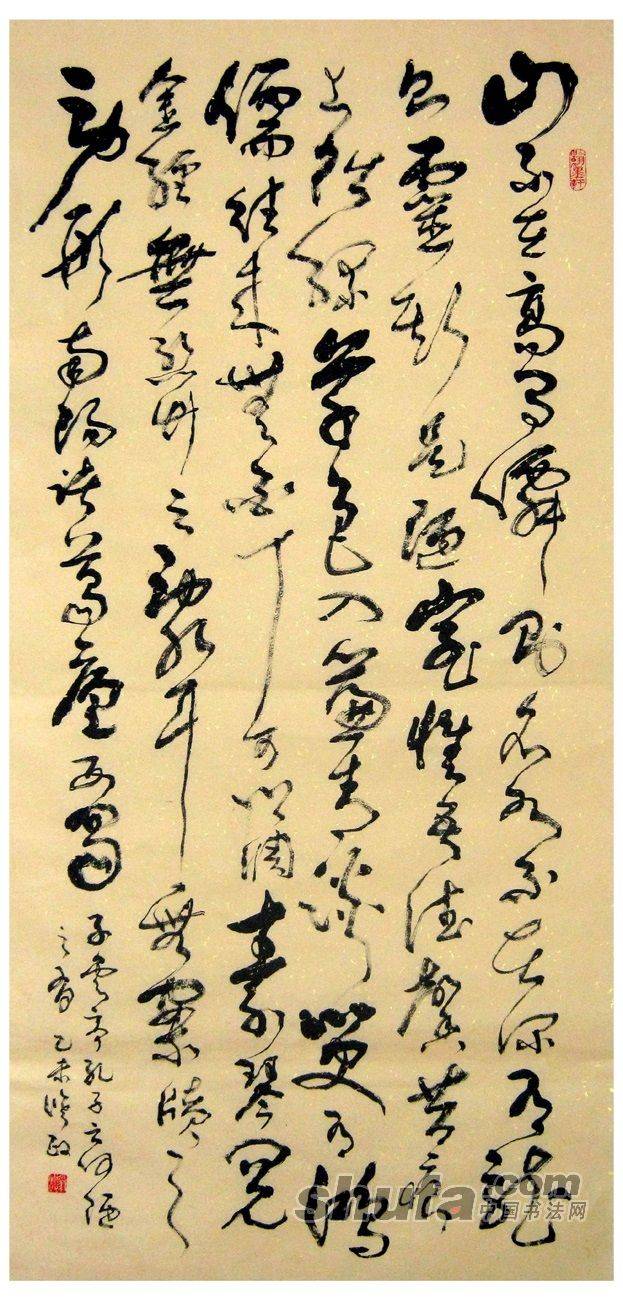 山不在高有僊則名水不在深有龍
則靈斯是陋室惟吾德馨苔痕
上階綠草色入簾青談笑有鴻
儒往來無白丁可以調素琴閱
金經無絲竹之亂耳無案牘之
勞形南陽諸葛廬西蜀
子雲亭孔子云何陋
之有乙未
翰墨軒
shufa.com
中国书法网